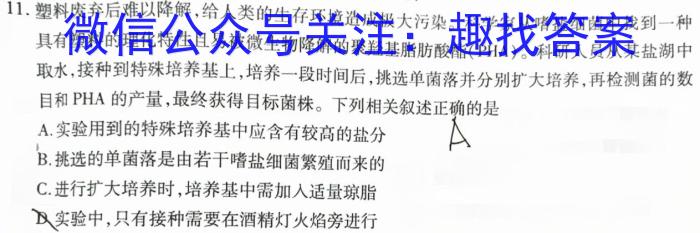 11. 塑料废弃后难以降解,给人类的生存环境造成极大污染。
微信公众号关注:趣找答案
取水,接种到特殊培养基上,培养一段时间后,挑选单菌落并分别扩大培养,再检测菌的数
目和 PHA 的产量,最终获得目标菌株。下列相关叙述正确的是
A
A.实验用到的特殊培养基中应含有较高的盐分
B.挑选的单菌落是由若干嗜盐细菌繁殖而来的
C.进行扩大培养时,培养基中需加入适量琼脂
D.实验中,只有接种需要在酒精灯火焰旁进行